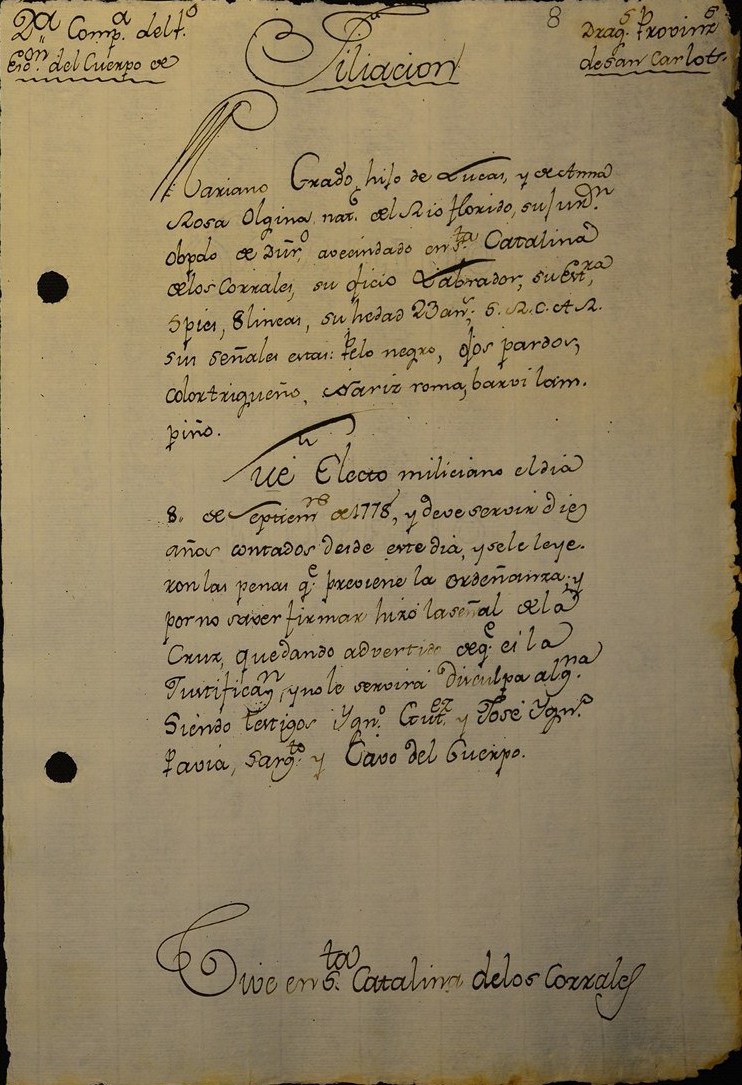 2ª Compª del 1º
Esqon del Cuerpo de
Filiacion
8
Dragˢ Provinˢ
de San Carlos.
Mariano Grado, hijo de Lucas, y de Anna
Rosa Olgina, natˡ del Rio florido, su Jurdⁿ
Obpdo de Durº, avecindado en Sta Catalina
de los Corrales, su oficio Labrador, su Estra
5 pies, 8 lineas, su hedad 23 aňˢ, S. R. C. A. R.
sus señales estas: Pelo negro, ojos pardos,
color trigueño, Nariz roma, barvi lam.
piño.
Fué Electo miliciano el dia
8,, de Septiemre de 1778, y deve servir diez
años contados desde este dia, y se le leye.
ron las penas qe previene la ordeñanza; y
por no saver firmar hizo la señal de la
Cruz, quedando advertido de qe es la
Justificaⁿ, y no le servirá disculpa algna
Siendo testigos Ygnº Gutez y José Ygnº
Pavia, Sargto y Cavo del Cuerpo.
Vive en Sta Catalina de los Corrales